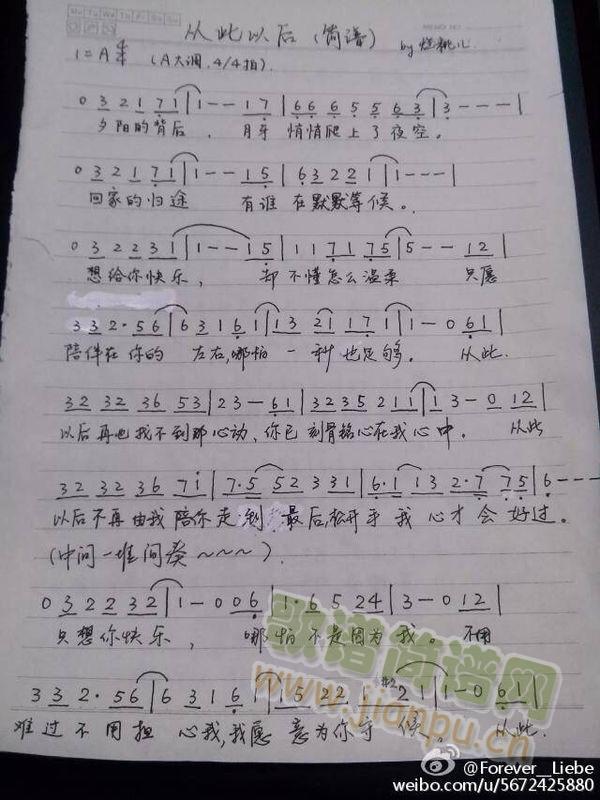 从此以后（简谱）
1=A 4/4 （A大调，4/4拍）.
0 3 2 1 7 1 | 1 - - 1 7 | 6 6 6 5 5 6 3 | 3 - - - |
夕阳的背后，月牙悄悄爬上了夜空。
0 3 2 1 7 1 | 1 - - 1 5 | 6 3 2 2 1 | 1 - - - |
回家的归途 有谁在默默等候。
0 3 2 2 3 1 | 1 - - 1 5 | 1 1 7 1 7 5 | 5 - - 1 2 |
想给你快乐，却不懂怎么温柔 只愿
3 3 2 · 5 6 | 6 3 1 6 1 | 1 3 2 1 1 7 1 | 1 - 0 6 1 |
陪伴在你的 左右,哪怕一种也足够。从此.
3 2 3 2 3 6 5 3 | 2 3 - 6 1 | 3 2 3 5 2 1 1 | 1 3 - 0 1 2 |
以后再也找不到那心动、你已刻骨铭心在我心中。从此
3 2 3 2 3 6 7 1 | 7 · 5 5 2 3 3 1 | 6 · 1 1 3 2 · 7 7 5 | 6 - - -
以后不再由我陪你走到最后,松开手我心才会好过。
(中间一堆间奏~~~~).
0 3 2 2 3 2 | 1 - 0 0 6 | 1 · 6 5 2 4 | 3 - 0 1 2 |
只想你快乐，哪怕不是因为我。不用
3 3 2 · 5 6 | 6 3 1 6 1 | 1 5 2 2 #2 2 1 | 1 - 0 6 1 |
难过不用担心我,我愿意为你守候。从此.
歌谱简谱网
www.jianpu.cn
@Forever__Liebe
weibo.com/u/5672425880